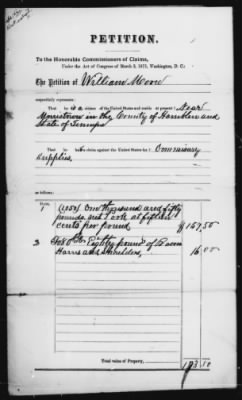 PETITION.
To the Honorable Commissioners of Claims,
Under the Act of Congress of March 3, 1871, Washington, D. C.:
The Petition of William Moore
respectfully represents:
That is a citizen of the United States and resides at present Near
Morristown in the County of Hamblen and
State of Tennessee
That claim against the United States for Commissary
Supplies
as follows:
1 (1050) One thousand and fifty
pounds of Pork at fifteen
cents per pound $157,50
2 Eighty pound of Bacon
Hams and Shoulders, 16.00
Total value of Property,